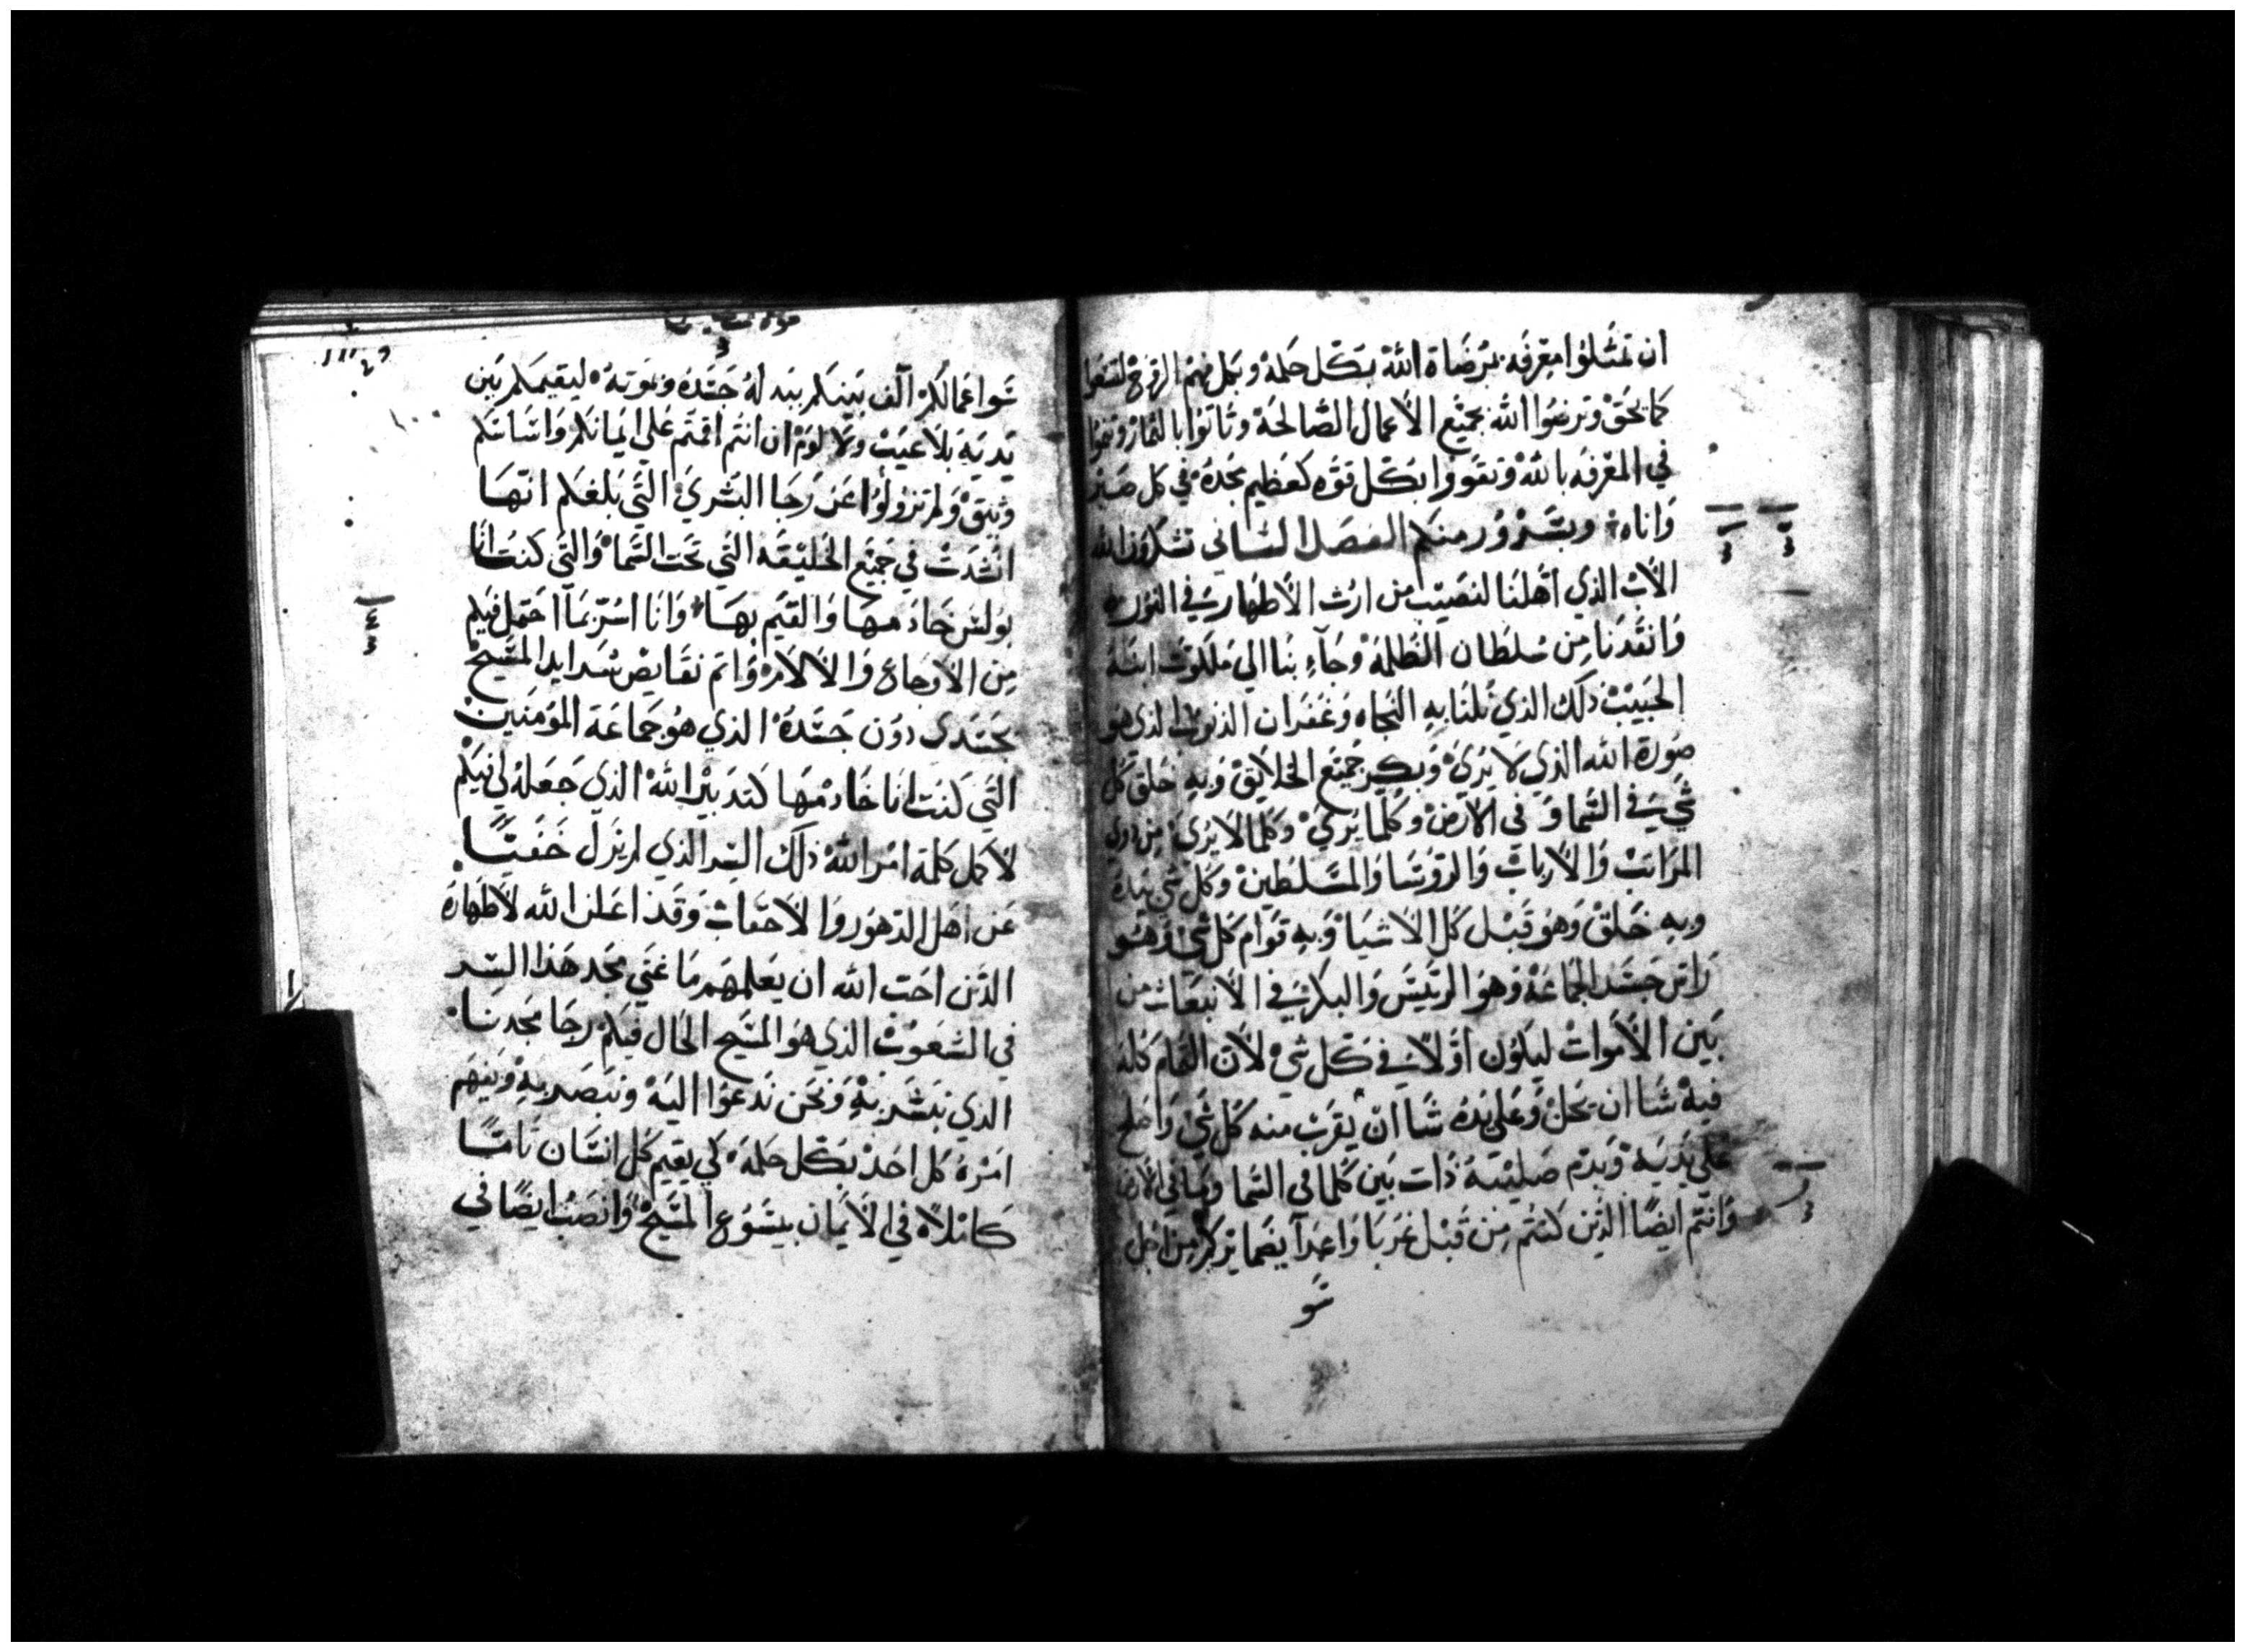 ان تمتلوا معرفه بمرضاة الله بكل حكمة وبكل فهم الروح لتسعوا
كما يحق وترضوا الله بجميع الأعمال الصالحة وتاتوا بالثمار وتنموا
في المعرفه بالله وتقووا بكل قوه كعظيم مجده في كل صبر
واناه وبسرور منكم الفصل الثاني تشكرون الله
الأب الذي أهلنا لنصيب من ارث الأطهار في النور
وانقدنا من سلطان الظلمة وجآء بنا الي ملكوت ابنه
الحبيب ذلك الذي نلنا به النجاه وغفران الذنوب الذي هو
صورة الله الذي لا يري وبكر جميع الخلايق وبه خلق كل
شي في السما وفي الارض وكلما يري وكلما لا يري من ذوي
المراتب والأرباب والروسا والمسلطين وكل شي بيده
وبه خلق وهو قبل كل الاشيا وبه قوام كل شي وهو
راس جسد الجماعة وهو الرئيس والبكر في الأنبعاث من
بين الأموات ليكون أولا في كل شي لأن التمام كله
فيه شا ان يحل وعلي يده شا ان يقرب منه كل شي واصلح
علي يديه وبدم صليبه ذات بين كلما في السما وما في الارض
وانتم ايضا الذين كنتم من قبل غربا واعدآ بضمايركم من اجل
سو
سو اعمالكم آلف بينكم ببدله جسده وموته ليقيمكم بين
يديه بلا عيب ولا لوم ان انتم اقمتم علي ايمانكم واساسكم
وثيق ولم تزولوا عن رجا البشري التي بلغكم انها
انشدت في جميع الخليقه التي تحت السما والتي كنت انا
بولس خادمها والقيم بها وانا اسر بما احتمل فيكم
من الأوجاع والألام واتم نقايص شدايد المسيح
بجسدي دون جسده الذي هو جماعة المومنين
التي كنت انا خادمها كتدبير الله الذي جعله لي فيكم
لأكمل كلمة امر الله ذلك السر الذي لم يزل خفيًا
عن اهل الدهور والأحقاب وقد اعلن الله لأطهاره
الذين احب الله ان يعلمهم ما غني مجد هذا السر
في الشعوب الذي هو المسيح الحال فيكم رجا مجدنا
الذي نبشر به ونحن ندعوا اليه ونبصر به ونفهم
امره كل احد بكل حكمة كي يقيم كل انسان تامًا
كاملا في الأيمان بيسوع المسيح وانصب ايضا في